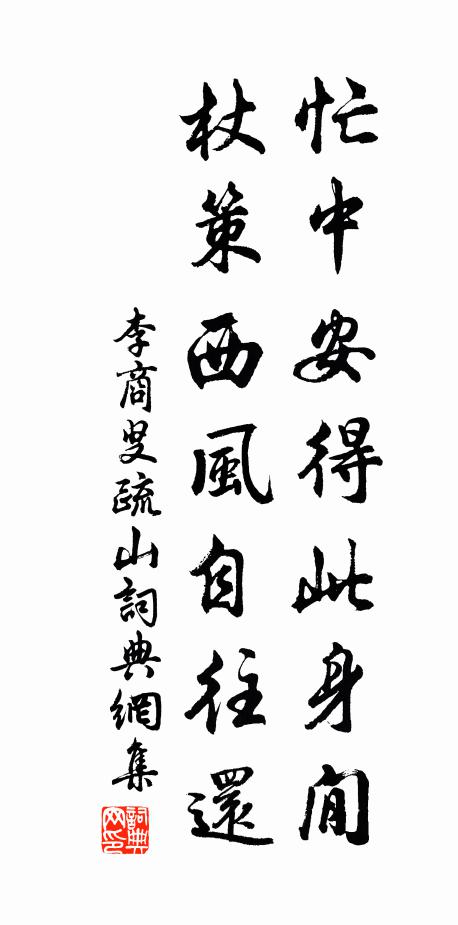 忙中安得此身閒
杖策西風自往還
李商叟疏山詞典網集
詞典网印